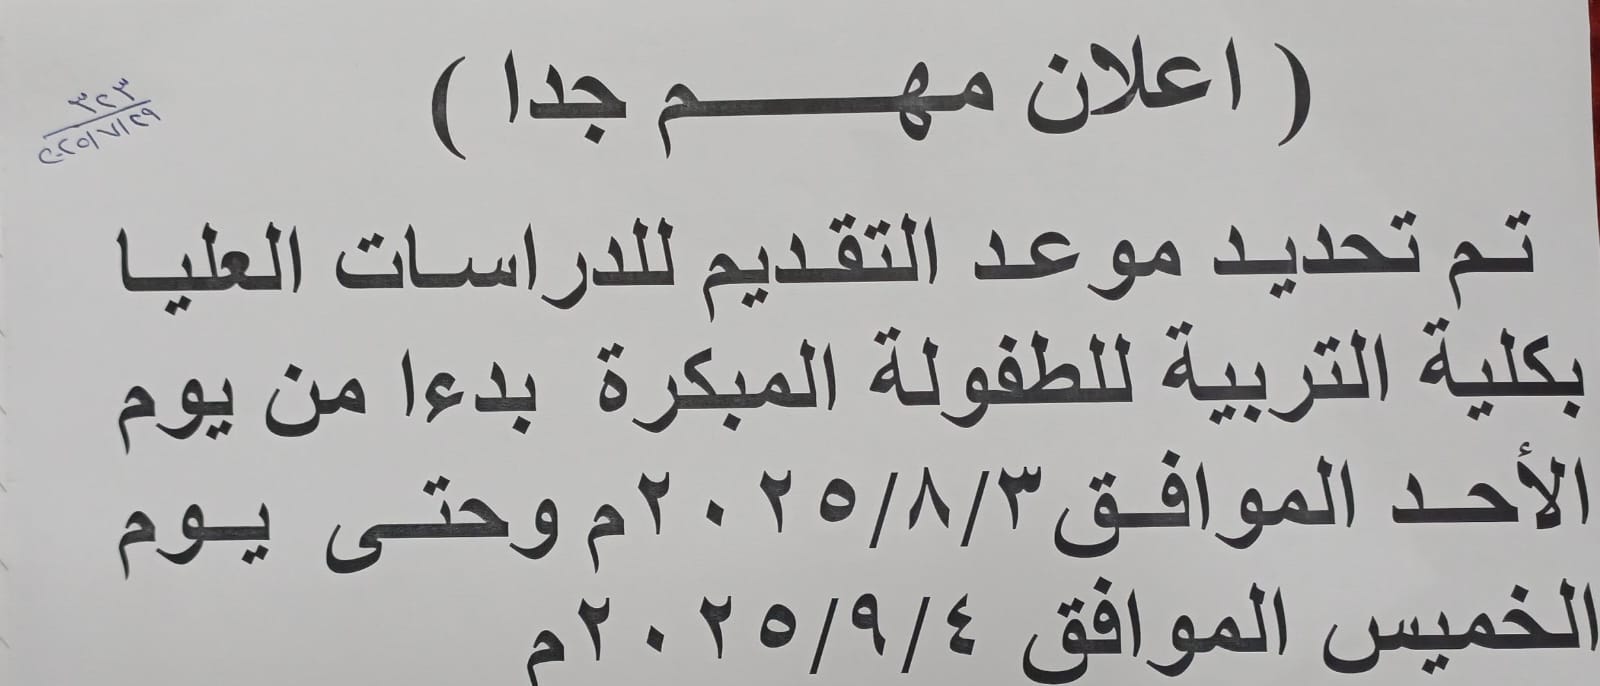 ( اعلان مهـــــــم جدا )
٣٢٣
٢٠٢٥/٧/٢٩
تـم تحديـد موعـد التقـديم للدراسـات العليـا
بكلية التربية للطفولة المبكرة بدءا من يوم
الأحـد الموافـق ٢٠٢٥/٨/٣م وحتـى يـوم
الخميس الموافق ٢٠٢٥/٩/٤م